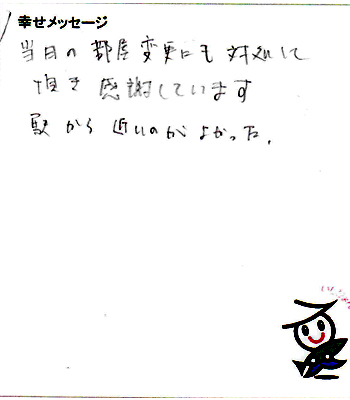 幸せメッセージ
当日の部屋変更にも対処して
頂き感謝しています
駅から近いのがよかった。